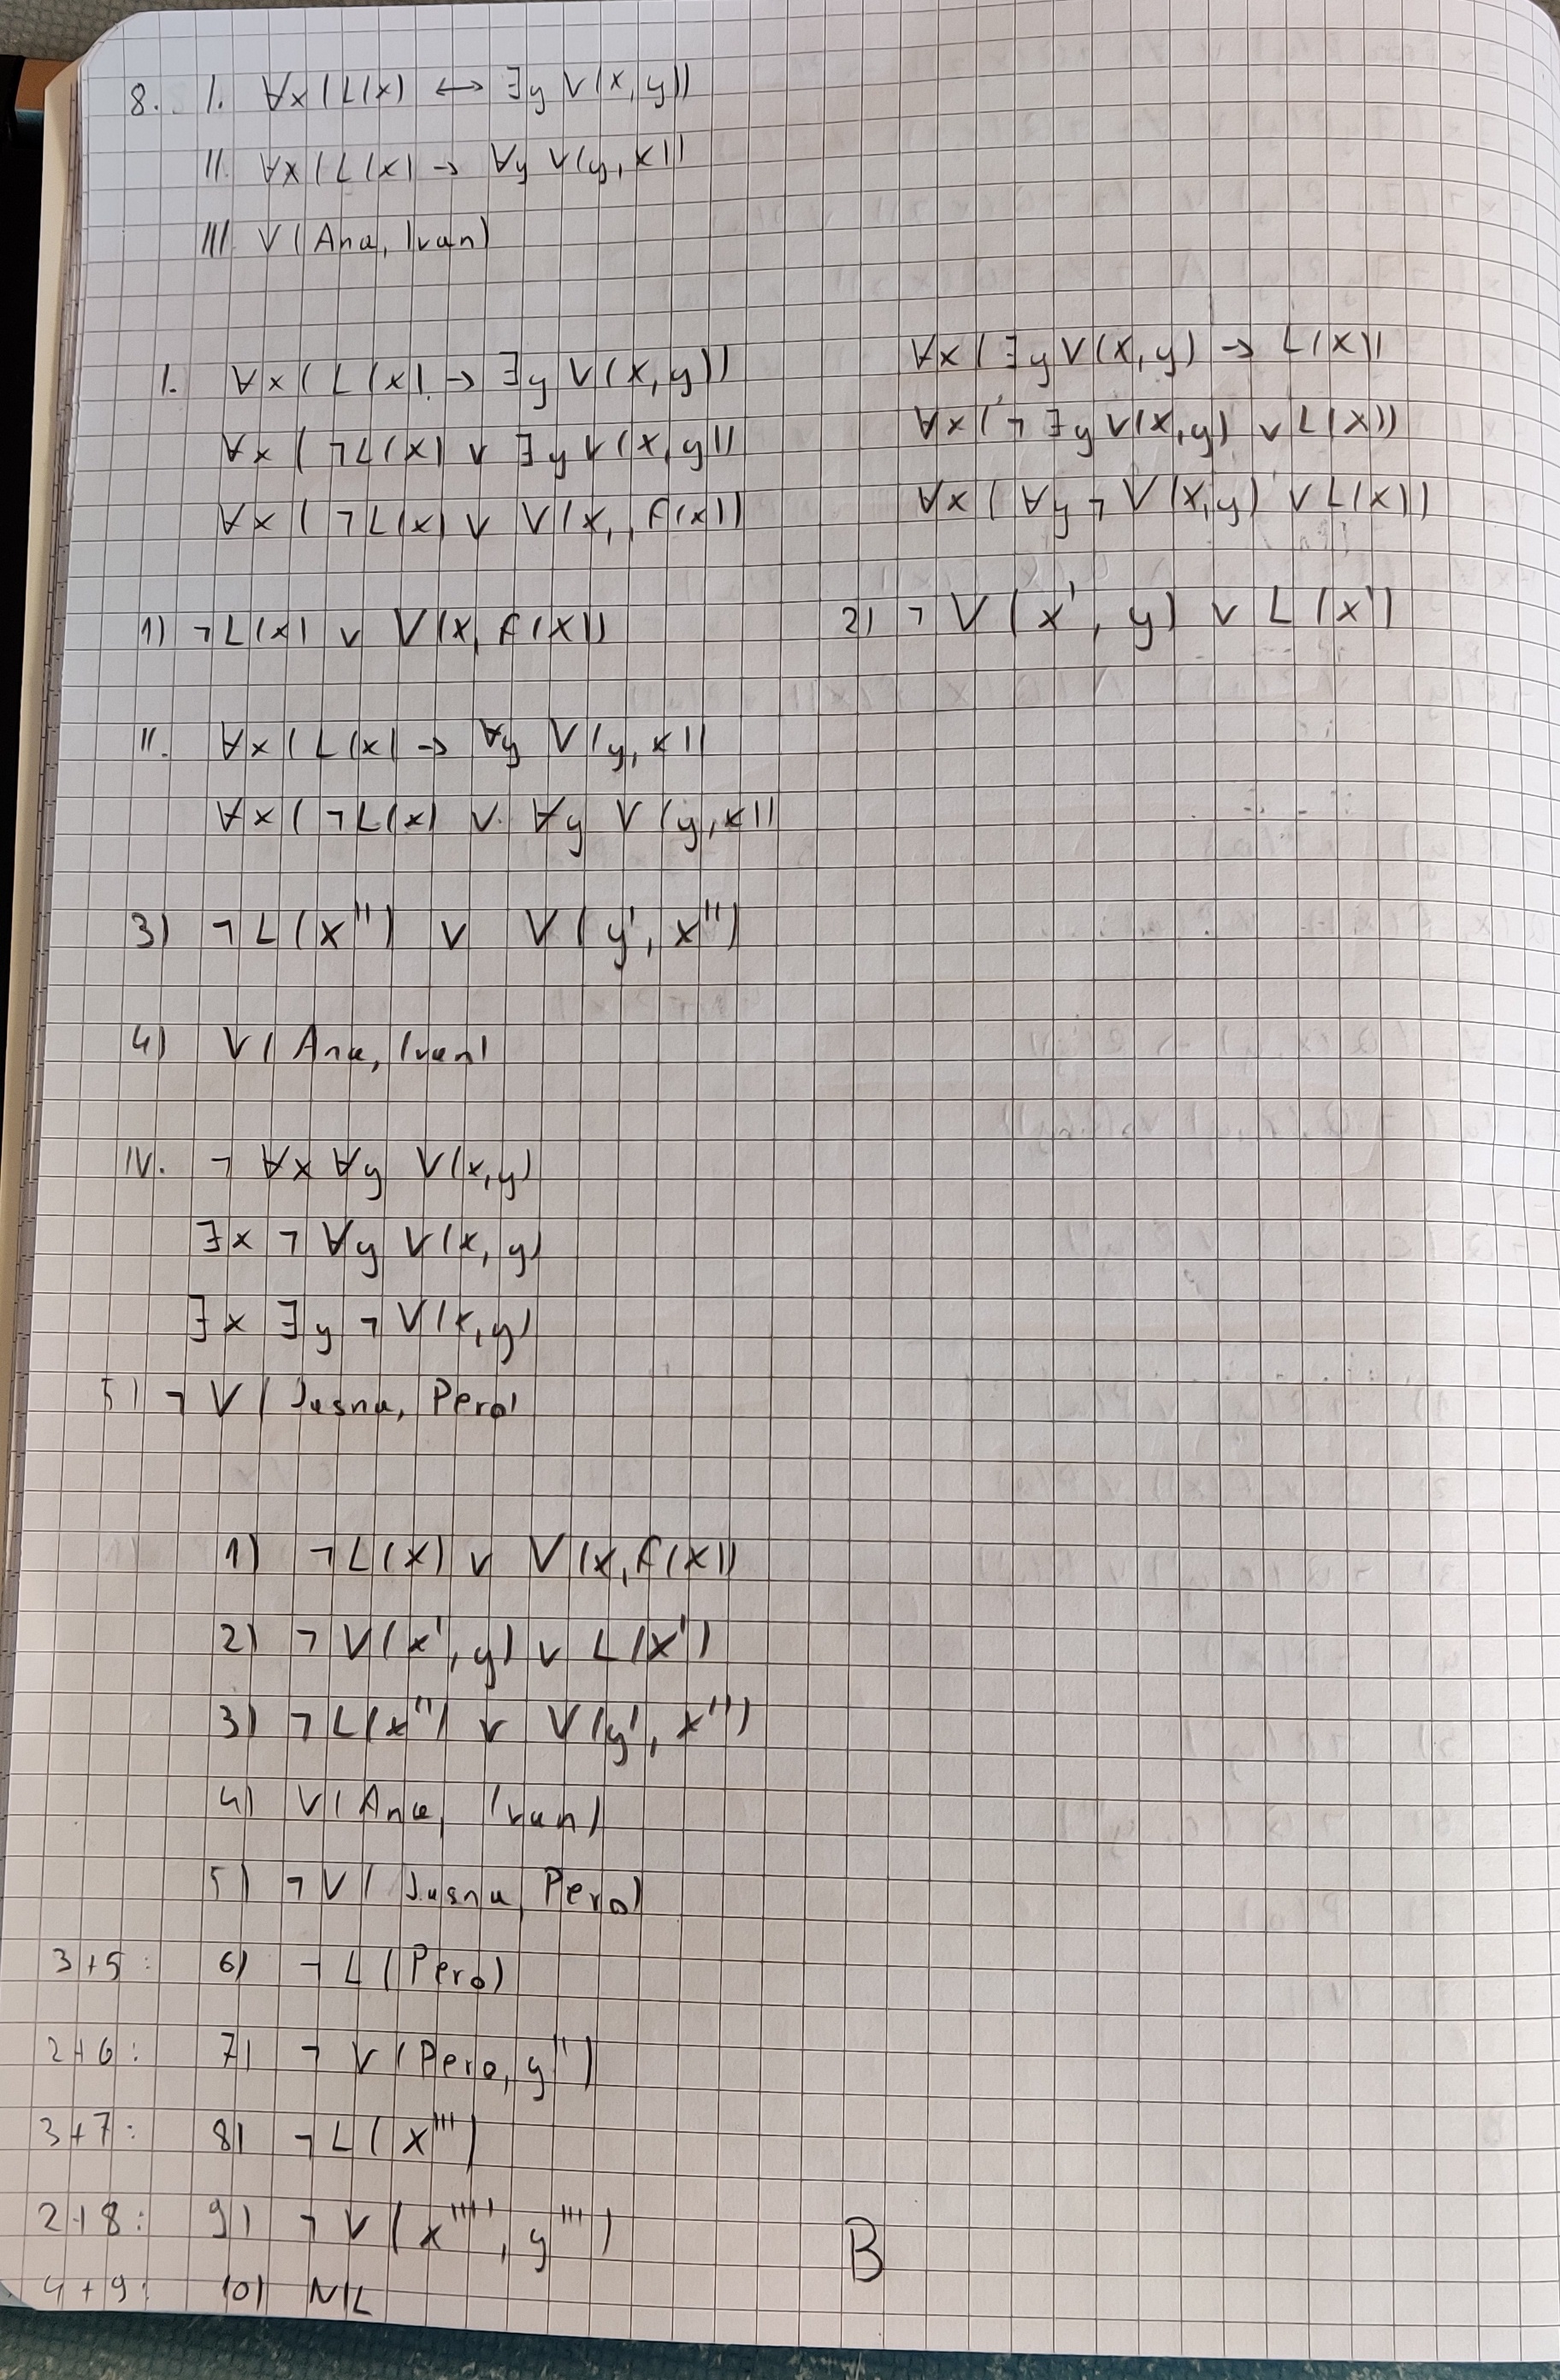 8. I. ∀x(L(x) ↔ ∃y V(x,y))
II. ∀x(L(x) → ∀y V(y,x))
III. V(Ana, Ivan)
I. ∀x(L(x) → ∃y V(x,y))
∀x(¬L(x) ∨ ∃y V(x,y))
∀x(¬L(x) ∨ V(x, f(x))
∀x(∃y V(x,y) → L(x))
∀x(¬∃y V(x,y) ∨ L(x))
∀x(∀y ¬V(x,y) ∨ L(x))
1) ¬L(x) ∨ V(x, f(x))
2) ¬V(x', y) ∨ L(x')
II. ∀x(L(x) → ∀y V(y,x))
∀x(¬L(x) ∨ ∀y V(y,x))
3) ¬L(x'') ∨ V(y', x'')
4) V(Ana, Ivan)
IV. ¬∀x ∀y V(x,y)
∃x ¬∀y V(x,y)
∃x ∃y ¬V(x,y)
5) ¬V(Jasna, Pero)
1) ¬L(x) ∨ V(x, f(x))
2) ¬V(x', y) ∨ L(x')
3) ¬L(x'') ∨ V(y', x'')
4) V(Ana, Ivan)
5) ¬V(Jasna, Pero)
3+5: 6) ¬L(Pero)
2+6: 7) ¬V(Pero, y'')
3+7: 8) ¬L(x''')
2+8: 9) ¬V(x'''', y''')
4+9: 10) NIL
B